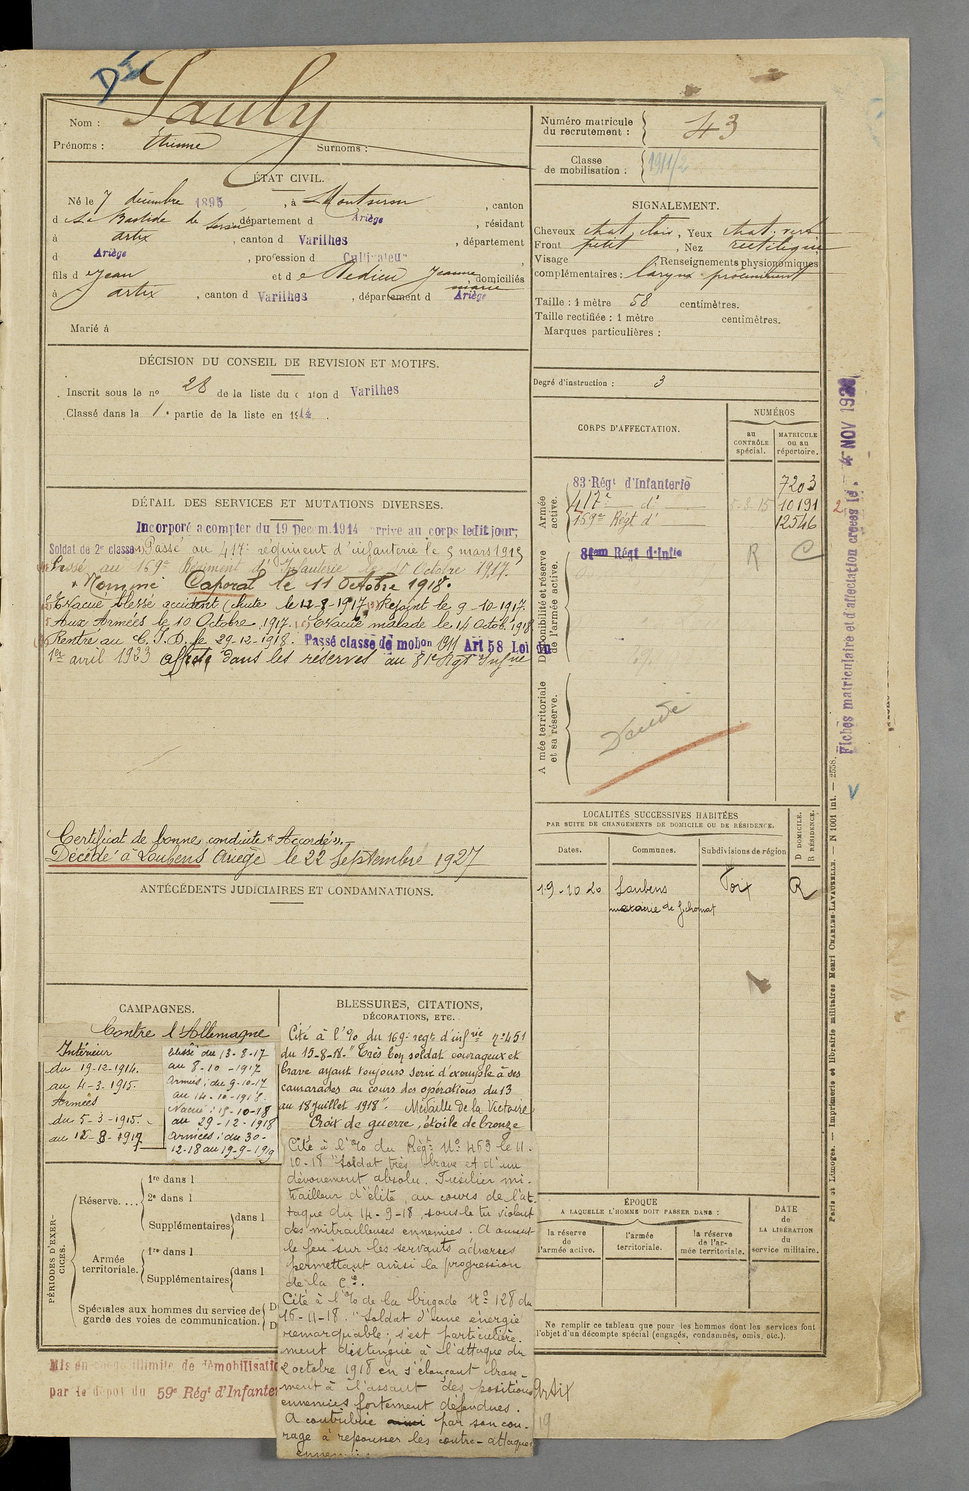 Nom : Pauly
Prénoms : Étienne Surnoms :
ÉTAT CIVIL.
Né le 7 décembre 1895, à Montseron, canton
d La Bastide de Sérou département d Ariège, résidant
à Artix, canton d Varilhes, département
d Ariège, profession d Cultivateur
fils d Jean et d Dedieu Jeanne marie domiciliés
à Artix, canton d Varilhes, département d Ariège
Marié à
DÉCISION DU CONSEIL DE REVISION ET MOTIFS.
Inscrit sous le no 28 de la liste du canton d Varilhes
Classé dans la 1e partie de la liste en 1914
DÉTAIL DES SERVICES ET MUTATIONS DIVERSES.
Incorporé a compter du 19 Decem. 1914 arrive au corps ledit jour;
Soldat de 2e classe Passé au 417e régiment d'infanterie le 5 mars 1915
Passé au 169e Régiment d'Infanterie le 10 Octobre 1917.
Nommé Caporal le 11 octobre 1918.
Evacué blessé accident (chute le 12-8-1917 Rejoint le 9-10-1917.
Aux Armées le 10 Octobre 1917. Evacué malade le 14 Octob. 1918
Rentré au C.I.D. le 29-12-1918. Passé classe de mobon 1911 Art 58 Loi du
1er avril 1923 affecté dans les réserves au 81e Rgt Infrie
Certificat de bonne conduite "Accordé"
Décédé à Loubens Ariège le 22 Septembre 1927
ANTÉCÉDENTS JUDICIAIRES ET CONDAMNATIONS.
CAMPAGNES.
Contre l'Allemagne
Intérieur
du 19-12-1914.
au 4-3-1915.
Armées
du 5-3-1915.
au 12-8-1917
Blessé du 13-8-17
au 8-10-1917
Armées : du 9-10-17
au 14-10-1918.
Evacué : 15-10-18
au 29-12-1918
Armées : du 30-
12-18 au 19-9-1919
BLESSURES, CITATIONS,
DÉCORATIONS, ETC.
Cité à l'% du 169e regt d'infrie no 451
du 15-8-18. "Très bon soldat courageux et
brave ayant toujours servi d'exemple à ses
camarades au cours des opérations du 13
au 18 juillet 1918". Médaille de la Victoire
Croix de guerre, étoile de bronze
Cité à l'% du Régt No 463 le 11-
10-18 "Soldat très brave et d'un
dévouement absolu. Fusilier mi-
trailleur d'élite, au cours de l'at-
taque du 14-9-18, sous le tir violent
des mitrailleuses ennemies. A ouvert
le feu sur les servants adverses
permettant ainsi la progression
de la Cie.
Cité à l'% de la brigade No 128 du
15-11-18. "Soldat d'une énergie
remarquable ; s'est particulière-
ment distingué à l'attaque du
2 octobre 1918 en s'élançant brave-
ment à l'assaut des positions
ennemies fortement défendues.
A contribué par son cou-
rage à repousser les contre-attaques
ennemies.
PÉRIODES D'EXERCICES.
Réserve....
1re dans l
2e dans l
Supplémentaires dans l
Armée territoriale.
1re dans l
Supplémentaires dans l
Spéciales aux hommes du service de
garde des voies de communication.
Mis en congé illimité de démobilisation
par le dépot du 59e Régt d'Infanterie
Numéro matricule
du recrutement : 43
Classe
de mobilisation : 1911/2
SIGNALEMENT.
Cheveux chat. clair, Yeux chat. vert
Front petit, Nez rectiligne
Visage Renseignements physionomiques
complémentaires : larynx proéminent
Taille : 1 mètre 58 centimètres.
Taille rectifiée : 1 mètre centimètres.
Marques particulières :
Degré d'instruction : 3
CORPS D'AFFECTATION.
NUMÉROS
au CONTRÔLE spécial.
MATRICULE ou au répertoire.
Armée active.
83e Régt d'Infanterie 7203
417e — d° 5.3.15 10191
169me Régt d° 12546
Disponibilité et réserve de l'armée active.
81em Régt d'Infie R C
Armée territoriale et sa réserve.
Décédé
LOCALITÉS SUCCESSIVES HABITÉES
PAR SUITE DE CHANGEMENTS DE DOMICILE OU DE RÉSIDENCE.
D DOMICILE.
R RÉSIDENCE.
Dates. Communes. Subdivisions de région
19-10-20 Loubens Foix R
ÉPOQUE
A LAQUELLE L'HOMME DOIT PASSER DANS :
la réserve de l'armée active.
l'armée territoriale.
la réserve de l'armée territoriale.
DATE de LA LIBÉRATION du service militaire.
Ne remplir ce tableau que pour les hommes dont les services font
l'objet d'un décompte spécial (engagés, condamnés, omis, etc.).
Artix
19
Fiches matriculaire et d'affectation créées le 4 NOV 192
Paris et Limoges. — Imprimerie et librairie militaires Henri CHARLES-LAVAUZELLE. — N 1001 int. — 2558.